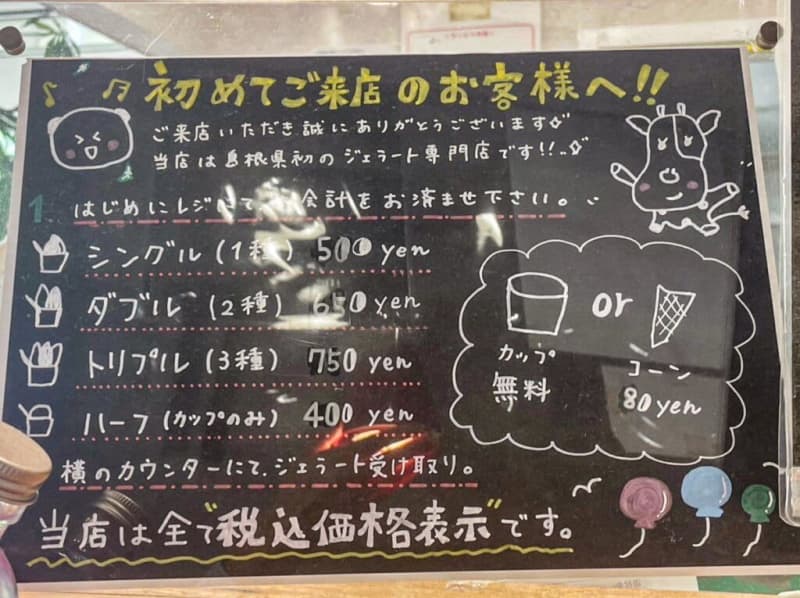 初めてご来店のお客様へ!!
ご来店いただき誠にありがとうございます
当店は島根県初のジェラート専門店です!!..
1 はじめにレジにて、お会計をお済ませ下さい。
シングル(1種) 500 yen
ダブル(2種) 650 yen
トリプル(3種) 750 yen
ハーフ(カップのみ) 400 yen
or
カップ
無料
コーン
80 yen
横のカウンターにて、ジェラート受け取り。
当店は全て"税込価格表示"です。